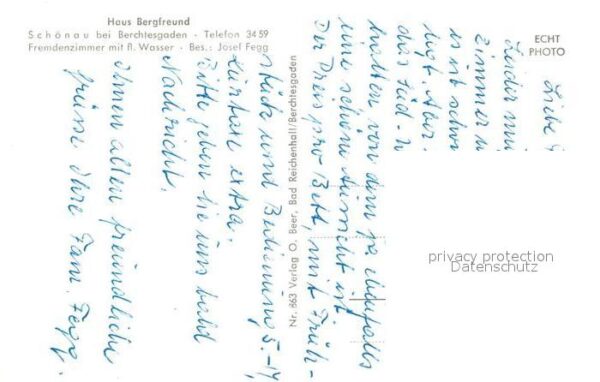 Haus Bergfreund
Schönau bei Berchtesgaden - Telefon 3459
Fremdenzimmer mit fl. Wasser - Bes.: Josef Fegg
ECHT
PHOTO
Nr. 863 Verlag O. Beer, Bad Reichenhall/Berchtesgaden
Liebe
Leider
Zimmer
es ist
liegt Aber
das Süd-
halten von dem ja ebenfalls
eine schöne Aussicht ist.
Der Preis pro Bett, mit Früh-
stück und Bedienung 5.-
Kurtaxe extra.
Bitte geben Sie uns bald
Nachricht.
Ihnen allen freundliche
Grüsse Ihre Fam. Fegg.
privacy protection
Datenschutz